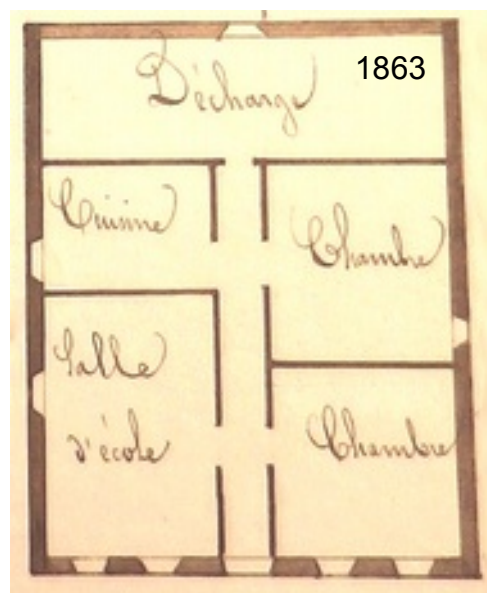 1863
Décharge
Cuisine
Chambre
Salle
d'école
Chambre